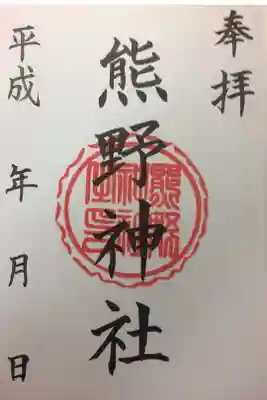 奉拝
熊野神社
平成 年 月 日